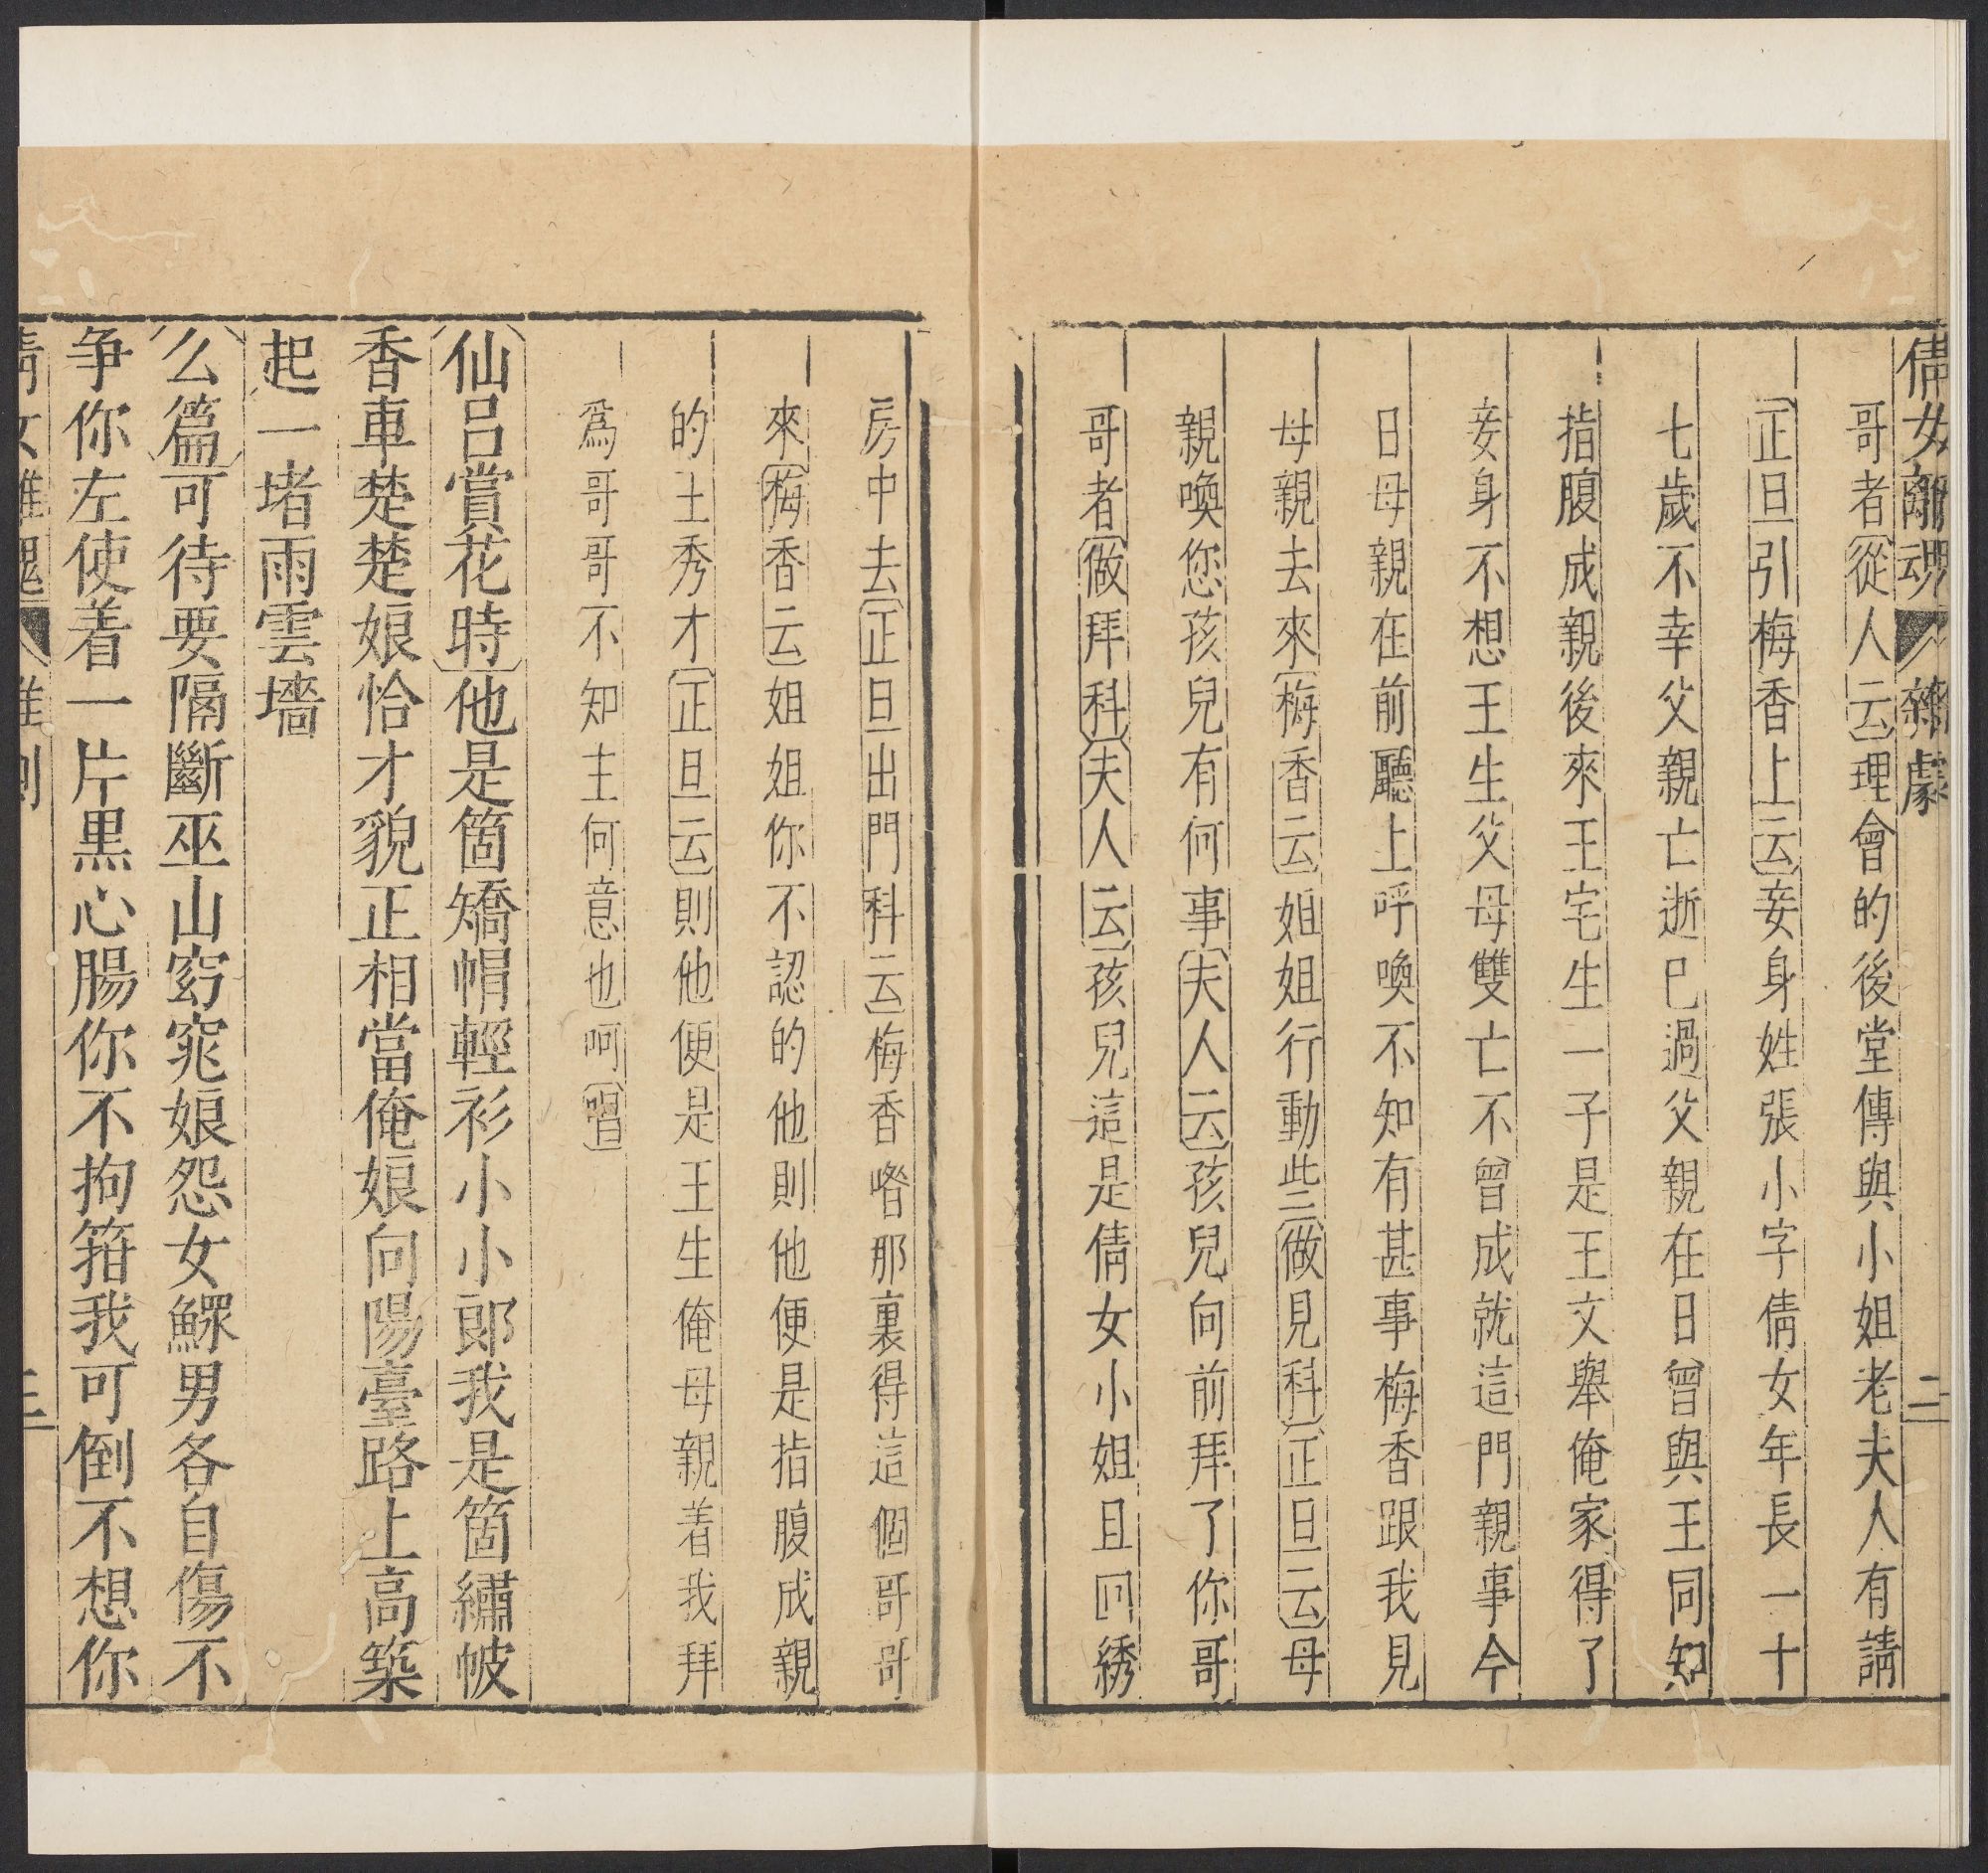 倩女離魂 雜劇 二
哥者從人云理會的後堂傳與小姐老夫人有請
正旦引梅香上云妾身姓張小字倩女年長一十
七歲不幸父親亡逝巳過父親在日曾與王同知
指腹成親後來王宅生一子是王文舉俺家得了
妾身不想王生父母雙亡不曾成就這門親事今
日母親在前聽上呼喚不知有甚事梅香跟我見
母親去來梅香云姐姐行動些做見科正旦云母
親喚您孩兒有何事夫人云孩兒向前拜了你哥
哥者做拜科夫人云孩兒這是倩女小姐且囘綉
房中去正旦出門科云梅香喒那裏得這個哥哥
來梅香云姐姐你不認的他則他便是指腹成親
的王秀才正旦云則他便是王生俺母親着我拜
爲哥哥不知主何意也呵唱
仙呂賞花時他是箇矯帽輕衫小小郎我是箇繡帔
香車楚楚娘恰才貌正相當俺娘向陽臺路上高築
起一堵雨雲墻
么篇可待要隔斷巫山窈窕娘怨女鰥男各自傷不
争你左使着一片黒心腸你不拘箝我可倒不想你
倩女離魂 雜劇 三